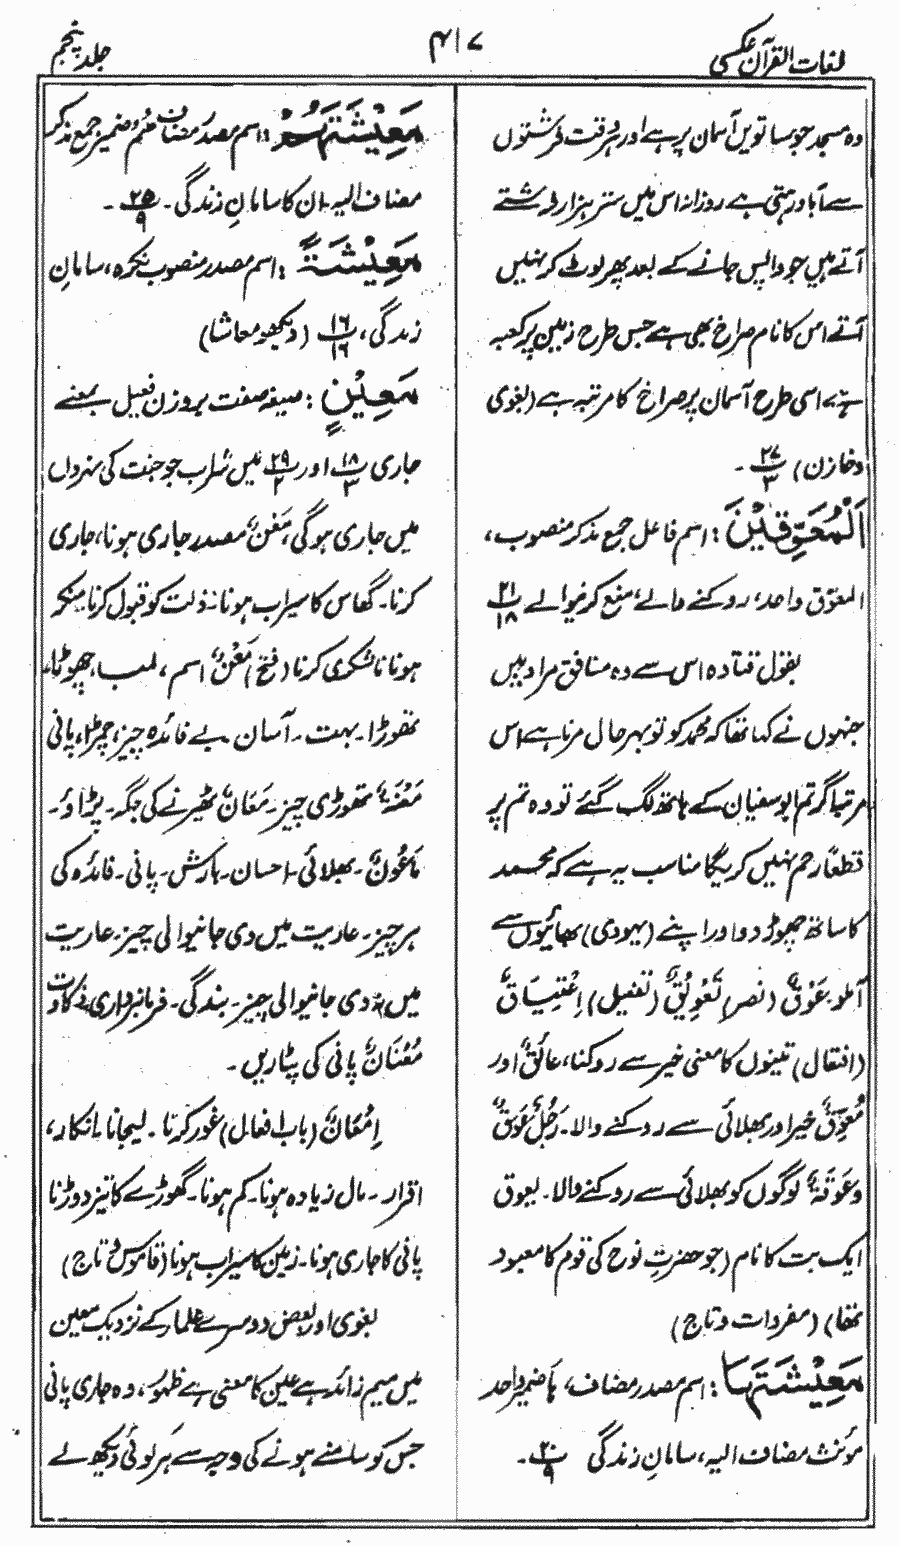 لغات القرآن عکسی
۴۱۷
جلد پنجم
وہ مسجد جو ساتویں آسمان پر ہے اور ہر وقت فرشتوں
سے آباد رہتی ہے روزانہ اس میں ستر ہزار فرشتے
آتے ہیں جو واپس جانے کے بعد پھر لوٹ کر نہیں
آتے اس کا نام صراخ بھی ہے جس طرح زمین پر کعبہ
ہے اسی طرح آسمان پر صراخ کا مرتبہ ہے (لغوی
وخازن) ۲۷/۳ -
اَلْمُعَوِّقِيْنَ : اسم فاعل جمع مذکر منصوب،
المعوّق واحد، روکنے والے، منع کرنیوالے ۲۱/۱۸
بقول قتادہ اس سے وہ منافق مراد ہیں
جنہوں نے کہا تھا کہ محمد کو تو بہر حال مرنا ہے اس
مرتبہ اگر تم ابو سفیان کے ہاتھ لگ گئے تو وہ تم پر
قطعاً رحم نہیں کریگا مناسب یہ ہے کہ محمد
کا ساتھ چھوڑ دو اور اپنے (یہودی) بھائیوں سے
آملو۔ عَوْقٌ (نصر) تَعْوِيْقٌ (تفعیل) اِعْتِيَاقٌ
(افتعال) تینوں کا معنی خیر سے روکنا، عائقٌ اور
مُعوِّقٌ خیر اور بھلائی سے روکنے والا۔ رَجُلٌ عَوْقٌ
وعَوَقَةٌ لوگوں کو بھلائی سے روکنے والا۔ یعوق
ایک بت کا نام (جو حضرتِ نوح کی قوم کا معبود
تھا) (مفردات و تاج)
مَعِيْشَتَهَا : اسم مصدر مضاف، ہَا ضمیر واحد
مؤنث مضاف الیہ، سامانِ زندگی ۲۰/۹ -
مَعِيْشَتَهُمْ : اسم مصدر مضاف ھُمْ ضمیر جمع مذکر
مضاف الیہ۔ ان کا سامانِ زندگی۔ ۲۵/۹ -
مَعِيْشَةً : اسم مصدر منصوب نکرہ، سامانِ
زندگی، ۱۶/۱۶ (دیکھو معاشا)
مَعِيْنٍ : صیغہ صفت بروزن فعیل بمعنے
جاری ۱۸/۳ اور ۲۹/۲ میں شراب جو جنت کی نہروں
میں جاری ہوگی، مَعْنٌ مصدر جاری ہونا، جاری
کرنا۔ گھاس کا سیراب ہونا۔ ذلت کو قبول کرنا۔ منکر
ہونا ناشکری کرنا (فتح) مَعْنٌ اسم، لمب، چھوٹا،
تھوڑا۔ بہت۔ آسان۔ بے فائدہ چیز، چمڑا، پانی
مَعْنَةٌ تھوڑی چیز۔ مَعَانٌ ٹھیرنے کی جگہ۔ پڑاؤ۔
مَاعُوْنٌ۔ بھلائی۔ احسان۔ بارش۔ پانی۔ فائدہ کی
ہر چیز۔ عاریت میں دی جانیوالی چیز۔ عاریت
میں نہ دی جانیوالی چیز۔ بندگی۔ فرمانبرداری، زکاۃ
مُعْنَانٌ پانی کی پٹاریں۔
اِمْعَانٌ (باب افعال) غور کرنا۔ لیجانا۔ انکار،
اقرار۔ مال زیادہ ہونا۔ کم ہونا۔ گھوڑے کا تیز دوڑنا
پانی کا جاری ہونا۔ زمین کا سیراب ہونا (قاموس و تاج)
لغوی اور بعض دوسرے علماء کے نزدیک معین
میں میم زائد ہے عین کا معنی ہے ظہور، وہ جاری پانی
جس کو سامنے ہونے کی وجہ سے ہر کوئی دیکھ لے